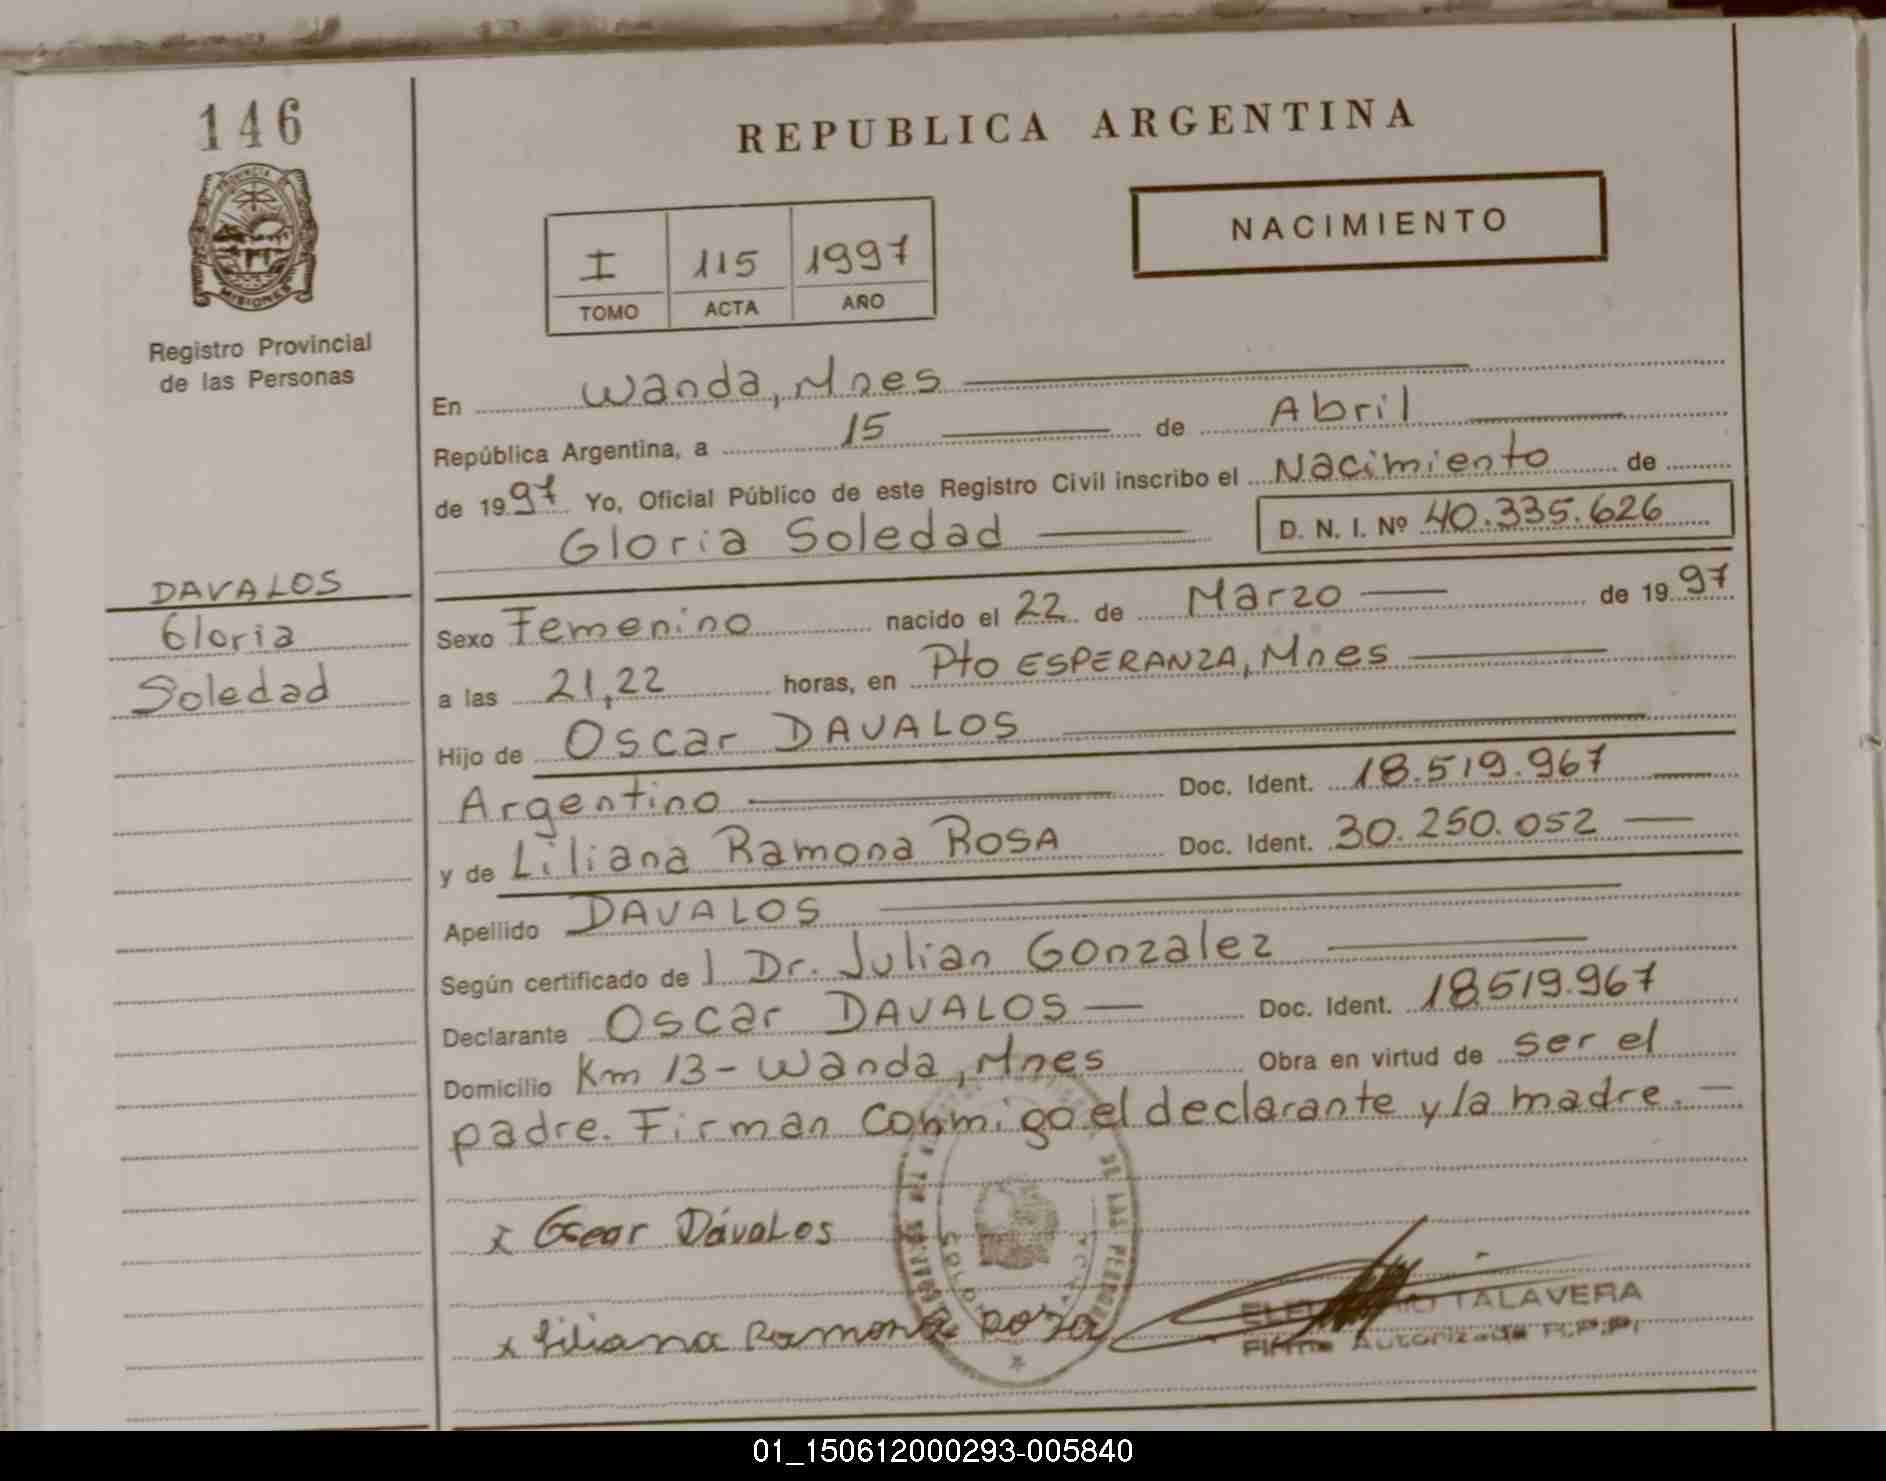 146
PROVINCIA DE
MISIONES
Registro Provincial
de las Personas
DAVALOS
Gloria
Soledad
REPUBLICA ARGENTINA
NACIMIENTO
I 115 1997
TOMO ACTA AÑO
En Wanda, Mnes
República Argentina, a 15 de Abril
de 1997 Yo, Oficial Público de este Registro Civil inscribo el Nacimiento de
Gloria Soledad D. N. I. Nº 40.335.626
Sexo Femenino nacido el 22 de Marzo de 1997
a las 21,22 horas, en Pto ESPERANZA, Mnes
Hijo de Oscar DAVALOS
Argentino Doc. Ident. 18.519.967
y de Liliana Ramona ROSA Doc. Ident. 30.250.052
Apellido DAVALOS
Según certificado de l Dr. Julian Gonzalez
Declarante Oscar DAVALOS Doc. Ident. 18.519.967
Domicilio Km 13 - Wanda, Mnes Obra en virtud de ser el
padre. Firman conmigo el declarante y la madre.
x Oscar Dávalos
DE LAS PERSONAS
x Liliana Ramona Rosa
TALAVERA
Firma Autorizada R.P.P.
01_150612000293-005840